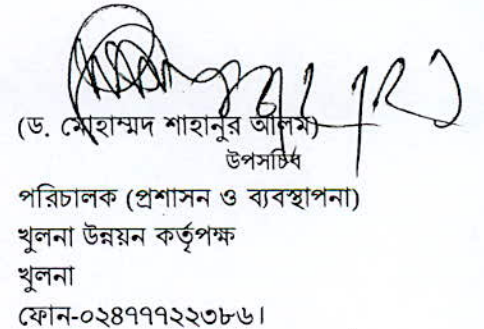 (ড. মোহাম্মদ শাহানুর আলম)
উপসচিব
পরিচালক (প্রশাসন ও ব্যবস্থাপনা)
খুলনা উন্নয়ন কর্তৃপক্ষ
খুলনা
ফোন-০২৪৭৭৭২২৩৮৬।